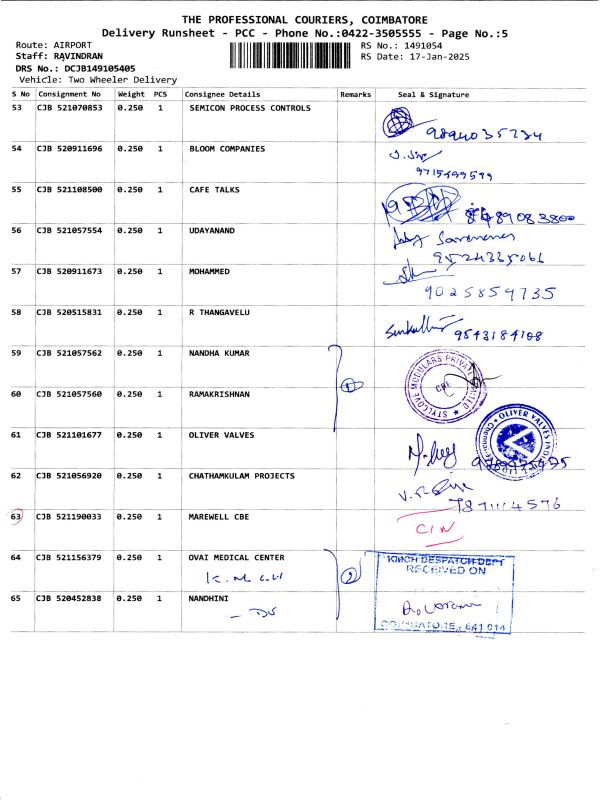 THE PROFESSIONAL COURIERS, COIMBATORE
Delivery Runsheet - PCC - Phone No.:0422-3505555 - Page No.:5
Route: AIRPORT
RS No.: 1491054
Staff: RAVINDRAN
RS Date: 17-Jan-2025
DRS No.: DCJB149105405
Vehicle: Two Wheeler Delivery
S No Consignment No Weight PCS Consignee Details Remarks Seal & Signature
53 CJB 521070853 0.250 1 SEMICON PROCESS CONTROLS
54 CJB 520911696 0.250 1 BLOOM COMPANIES
9715499599
55 CJB 521108500 0.250 1 CAFE TALKS
56 CJB 521057554 0.250 1 UDAYANAND
57 CJB 520911673 0.250 1 MOHAMMED
9025859735
58 CJB 520515831 0.250 1 R THANGAVELU
9543184108
59 CJB 521057562 0.250 1 NANDHA KUMAR
1
STYLCOVE MODULARS PRIVATE LIMITED
CBE
60 CJB 521057560 0.250 1 RAMAKRISHNAN
61 CJB 521101677 0.250 1 OLIVER VALVES
OLIVER VALVES
62 CJB 521056920 0.250 1 CHATHAMKULAM PROJECTS
63 CJB 521190033 0.250 1 MAREWELL CBE
CIN
64 CJB 521156379 0.250 1 OVAI MEDICAL CENTER
2
KMCH DESPATCH DEPT
RECEIVED ON
65 CJB 520452838 0.250 1 NANDHINI
COIMBATORE - 641 014